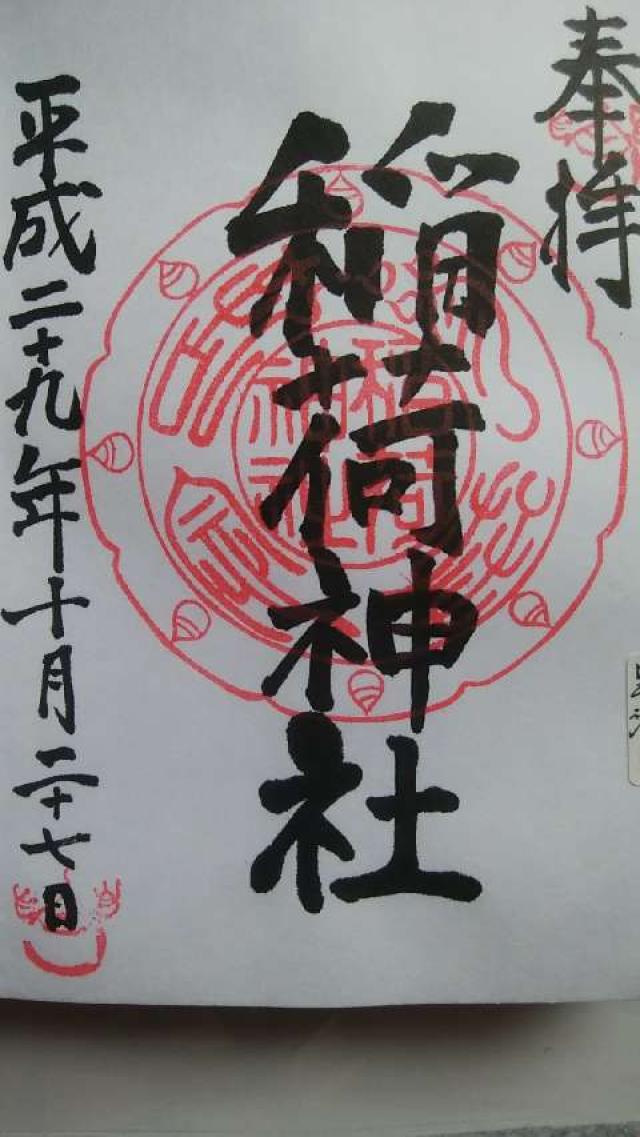 奉拝
稲荷神社
平成二十九年十月二十七日